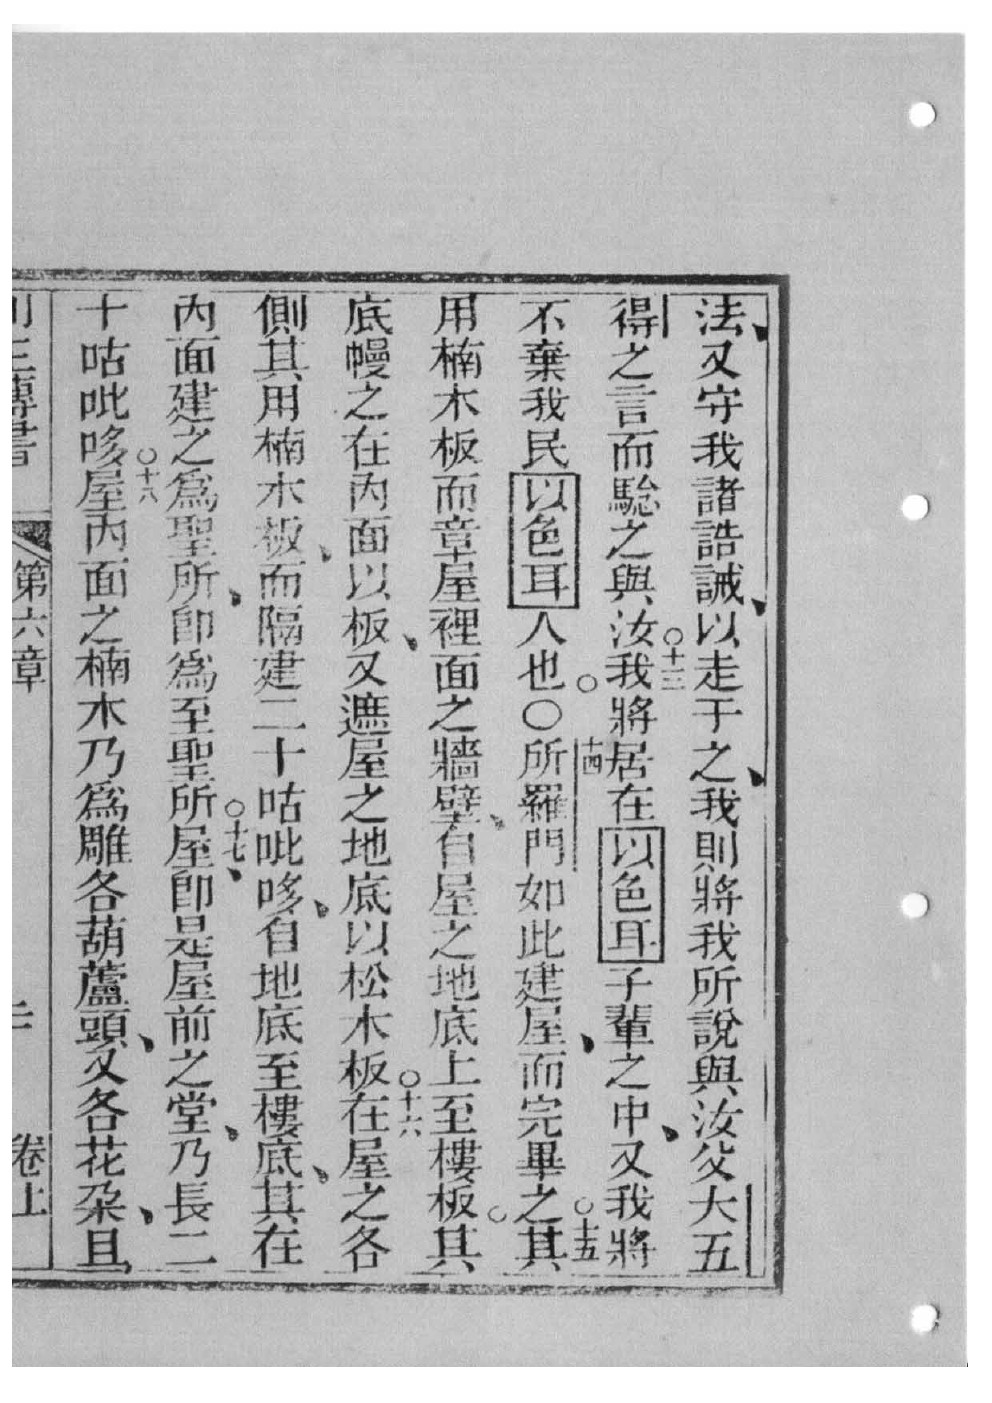 法又守我諸誥誡以走于之我則將我所說與汝父大五
得之言而騐之與汝○十三我將居在以色耳子輩之中又我將
不棄我民以色耳人也○○十四所羅門如此建屋而完畢之○十五其
用楠木板而章屋裡面之牆壁自屋之地底上至樓板其
底幔之在內面以板又遮屋之地底以松木板○十六在屋之各
側其用楠木板而隔建二十咕吡哆自地底至樓底其在
內面建之爲聖所卽爲至聖所○十七屋卽是屋前之堂乃長二
十咕吡哆○十八屋內面之楠木乃爲雕各葫蘆頭又各花朶且
列王傳書 第六章 二 卷上